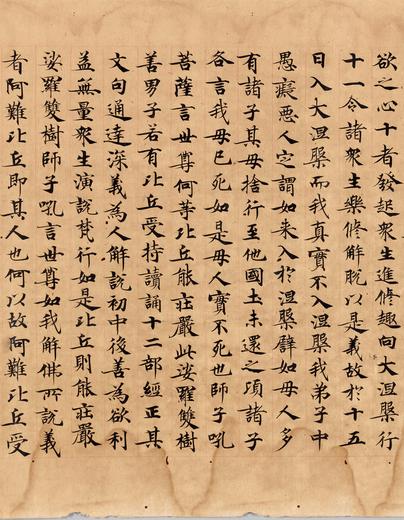 欲之心十者發起衆生進修趣向大涅槃行
十一令諸衆生樂修解脫以是義故於十五
日入大涅槃而我真實不入涅槃我弟子中
愚癡惡人定謂如來入於涅槃譬如母人多
有諸子其母捨行至他國土未還之頃諸子
各言我母已死如是母人實不死也師子吼
菩薩言世尊何等比丘能莊嚴此娑羅雙樹
善男子若有比丘受持讀誦十二部經正其
文句通達深義為人解說初中後善為欲利
益無量衆生演說梵行如是比丘則能莊嚴
娑羅雙樹師子吼言世尊如我解佛所說義
者阿難比丘即其人也何以故阿難比丘受